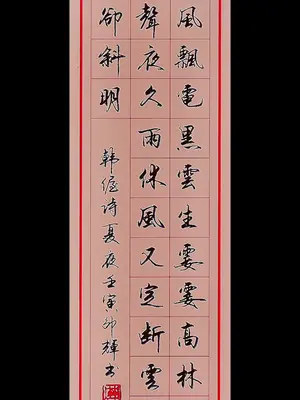 風飄電黑雲生霎霎高林
聲夜久雨休風又定断雲
卻斜明
韩偓诗夏夜壬寅卯輝书